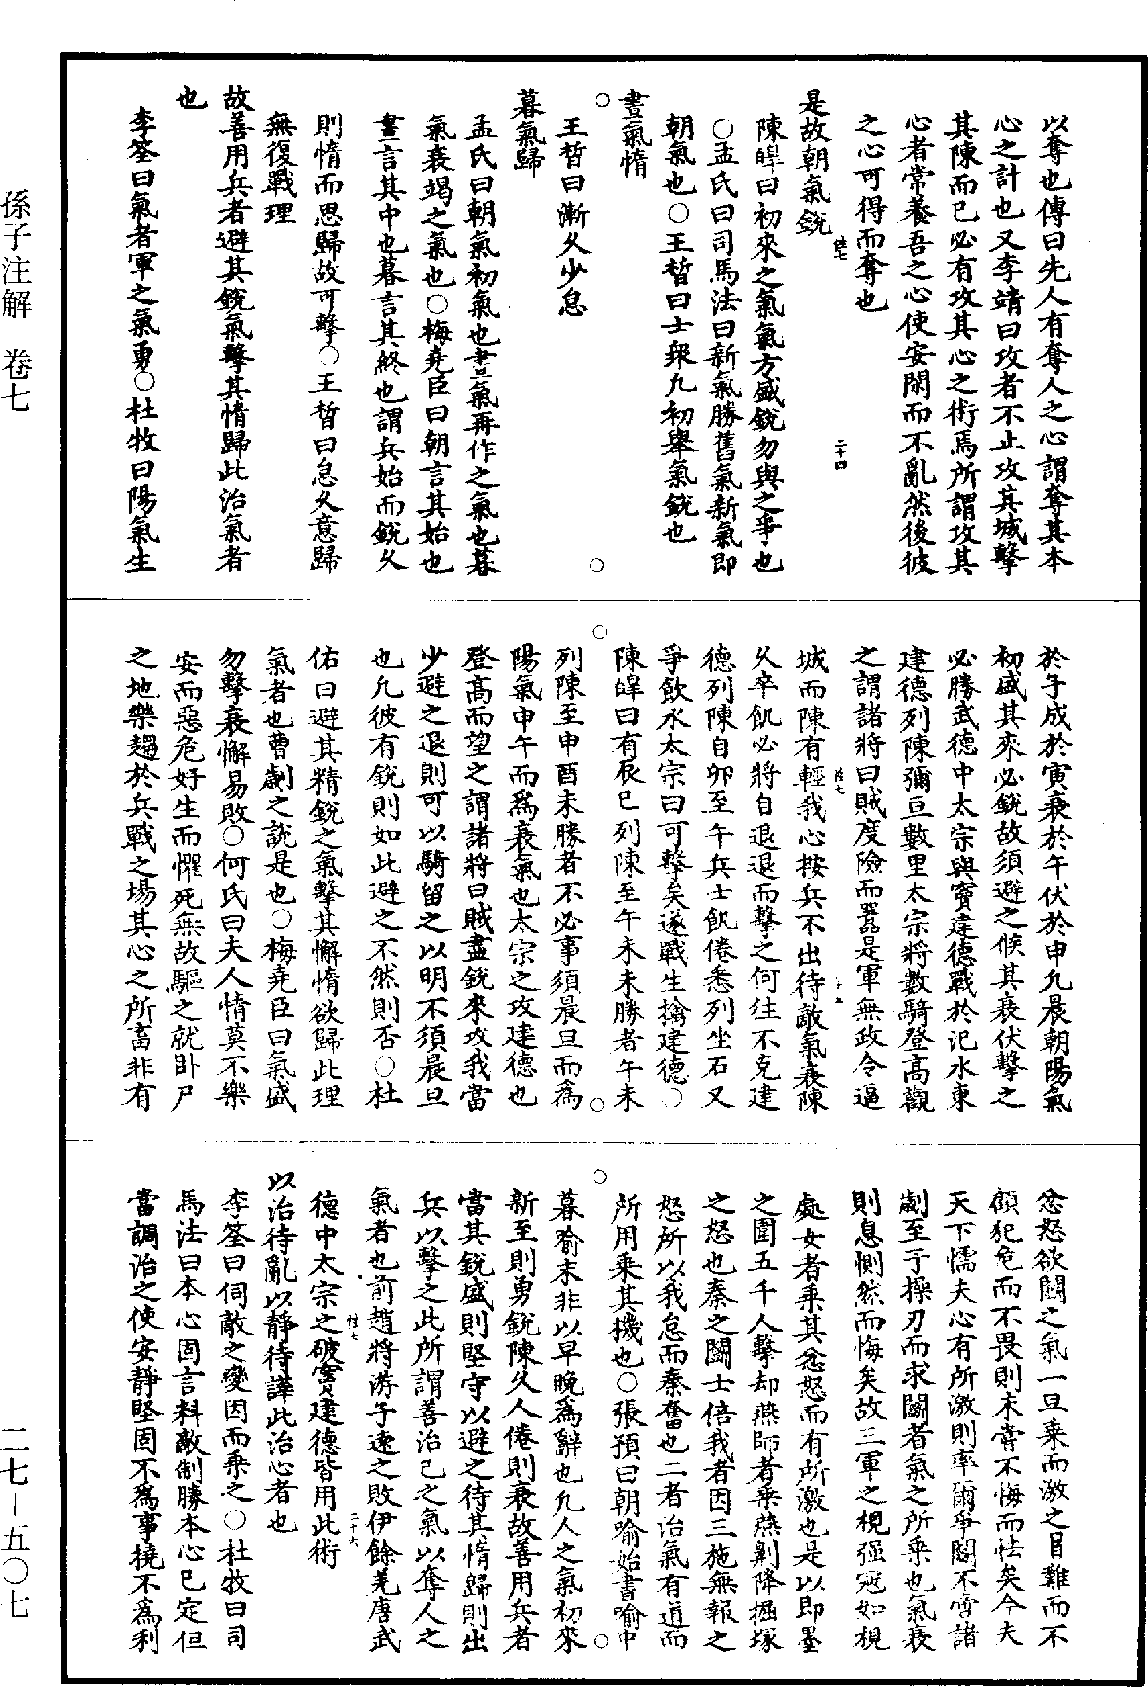 以奪也傳曰先人有奪人之心謂奪其本
心之計也又李靖曰攻者不止攻其城擊
其陳而已必有攻其心之術焉所謂攻其
心者常養吾之心使安閑而不亂然後彼
之心可得而奪也
是故朝氣銳
陳皥曰初來之氣氣方盛銳勿與之爭也
○孟氏曰司馬法曰新氣勝舊氣新氣即
朝氣也○王晳曰士衆凢初舉氣銳也
晝氣惰
王晳曰漸久少怠
暮氣歸
孟氏曰朝氣初氣也晝氣再作之氣也暮
氣衰竭之氣也○梅堯臣曰朝言其始也
晝言其中也暮言其終也謂兵始而銳久
則惰而思歸故可擊○王晳曰怠久意歸
無復戰理
故善用兵者避其銳氣擊其惰歸此治氣者
也
李筌曰氣者軍之氣勇○杜牧曰陽氣生
於子成於寅衰於午伏於申凢晨朝陽氣
初盛其來必銳故須避之候其衰伏擊之
必勝武德中太宗與竇建德戰於汜水東
建德列陳彌亘數里太宗將數騎登高觀
之謂諸將曰賊度險而嚻是軍無政令逼
城而陳有輕我心按兵不出待敵氣衰陳
久卒飢必將自退退而擊之何往不克建
德列陳自卯至午兵士飢倦悉列坐石又
爭飲水太宗曰可擊矣遂戰生擒建德○
陳皥曰有辰巳列陳至午未未勝者午未
列陳至申酉未勝者不必事須晨旦而為
陽氣申午而為衰氣也太宗之攻建德也
登高而望之謂諸將曰賊盡銳來攻我當
少避之退則可以騎留之以明不須晨旦
也凢彼有銳則如此避之不然則否○杜
佑曰避其精銳之氣擊其懈惰欲歸此理
氣者也曹劌之說是也○梅堯臣曰氣盛
勿擊衰懈易敗○何氏曰夫人情莫不樂
安而惡危好生而懼死無故驅之就卧尸
之地樂趨於兵戰之場其心之所畜非有
忿怒欲鬬之氣一旦乗而激之冒難而不
顧犯危而不畏則未嘗不悔而怯矣今夫
天下懦夫心有所激則率爾爭鬬不啻諸
劌至于操刃而求鬬者氣之所乗也氣衰
則息惻然而悔矣故三軍之視强寇如視
處女者乗其忿怒而有所激也是以即墨
之圍五千人擊却燕師者乗燕劓降掘塚
之怒也秦之鬬士倍我者因三施無報之
怒所以我怠而秦奮也二者治氣有道而
所用乗其機也○張預曰朝喻始晝喻中
暮喻末非以早晚為辭也凢人之氣初來
新至則勇銳陳久人倦則衰故善用兵者
當其銳盛則堅守以避之待其惰歸則出
兵以擊之此所謂善治己之氣以奪人之
氣者也前趙將游子遠之敗伊餘羌唐武
德中太宗之破竇建德皆用此術
以治待亂以靜待譁此治心者也
李筌曰伺敵之變因而乗之○杜牧曰司
馬法曰本心固言料敵制勝本心已定但
當調治之使安靜堅固不為事撓不為利
孫子注解 卷七
二七－五○七